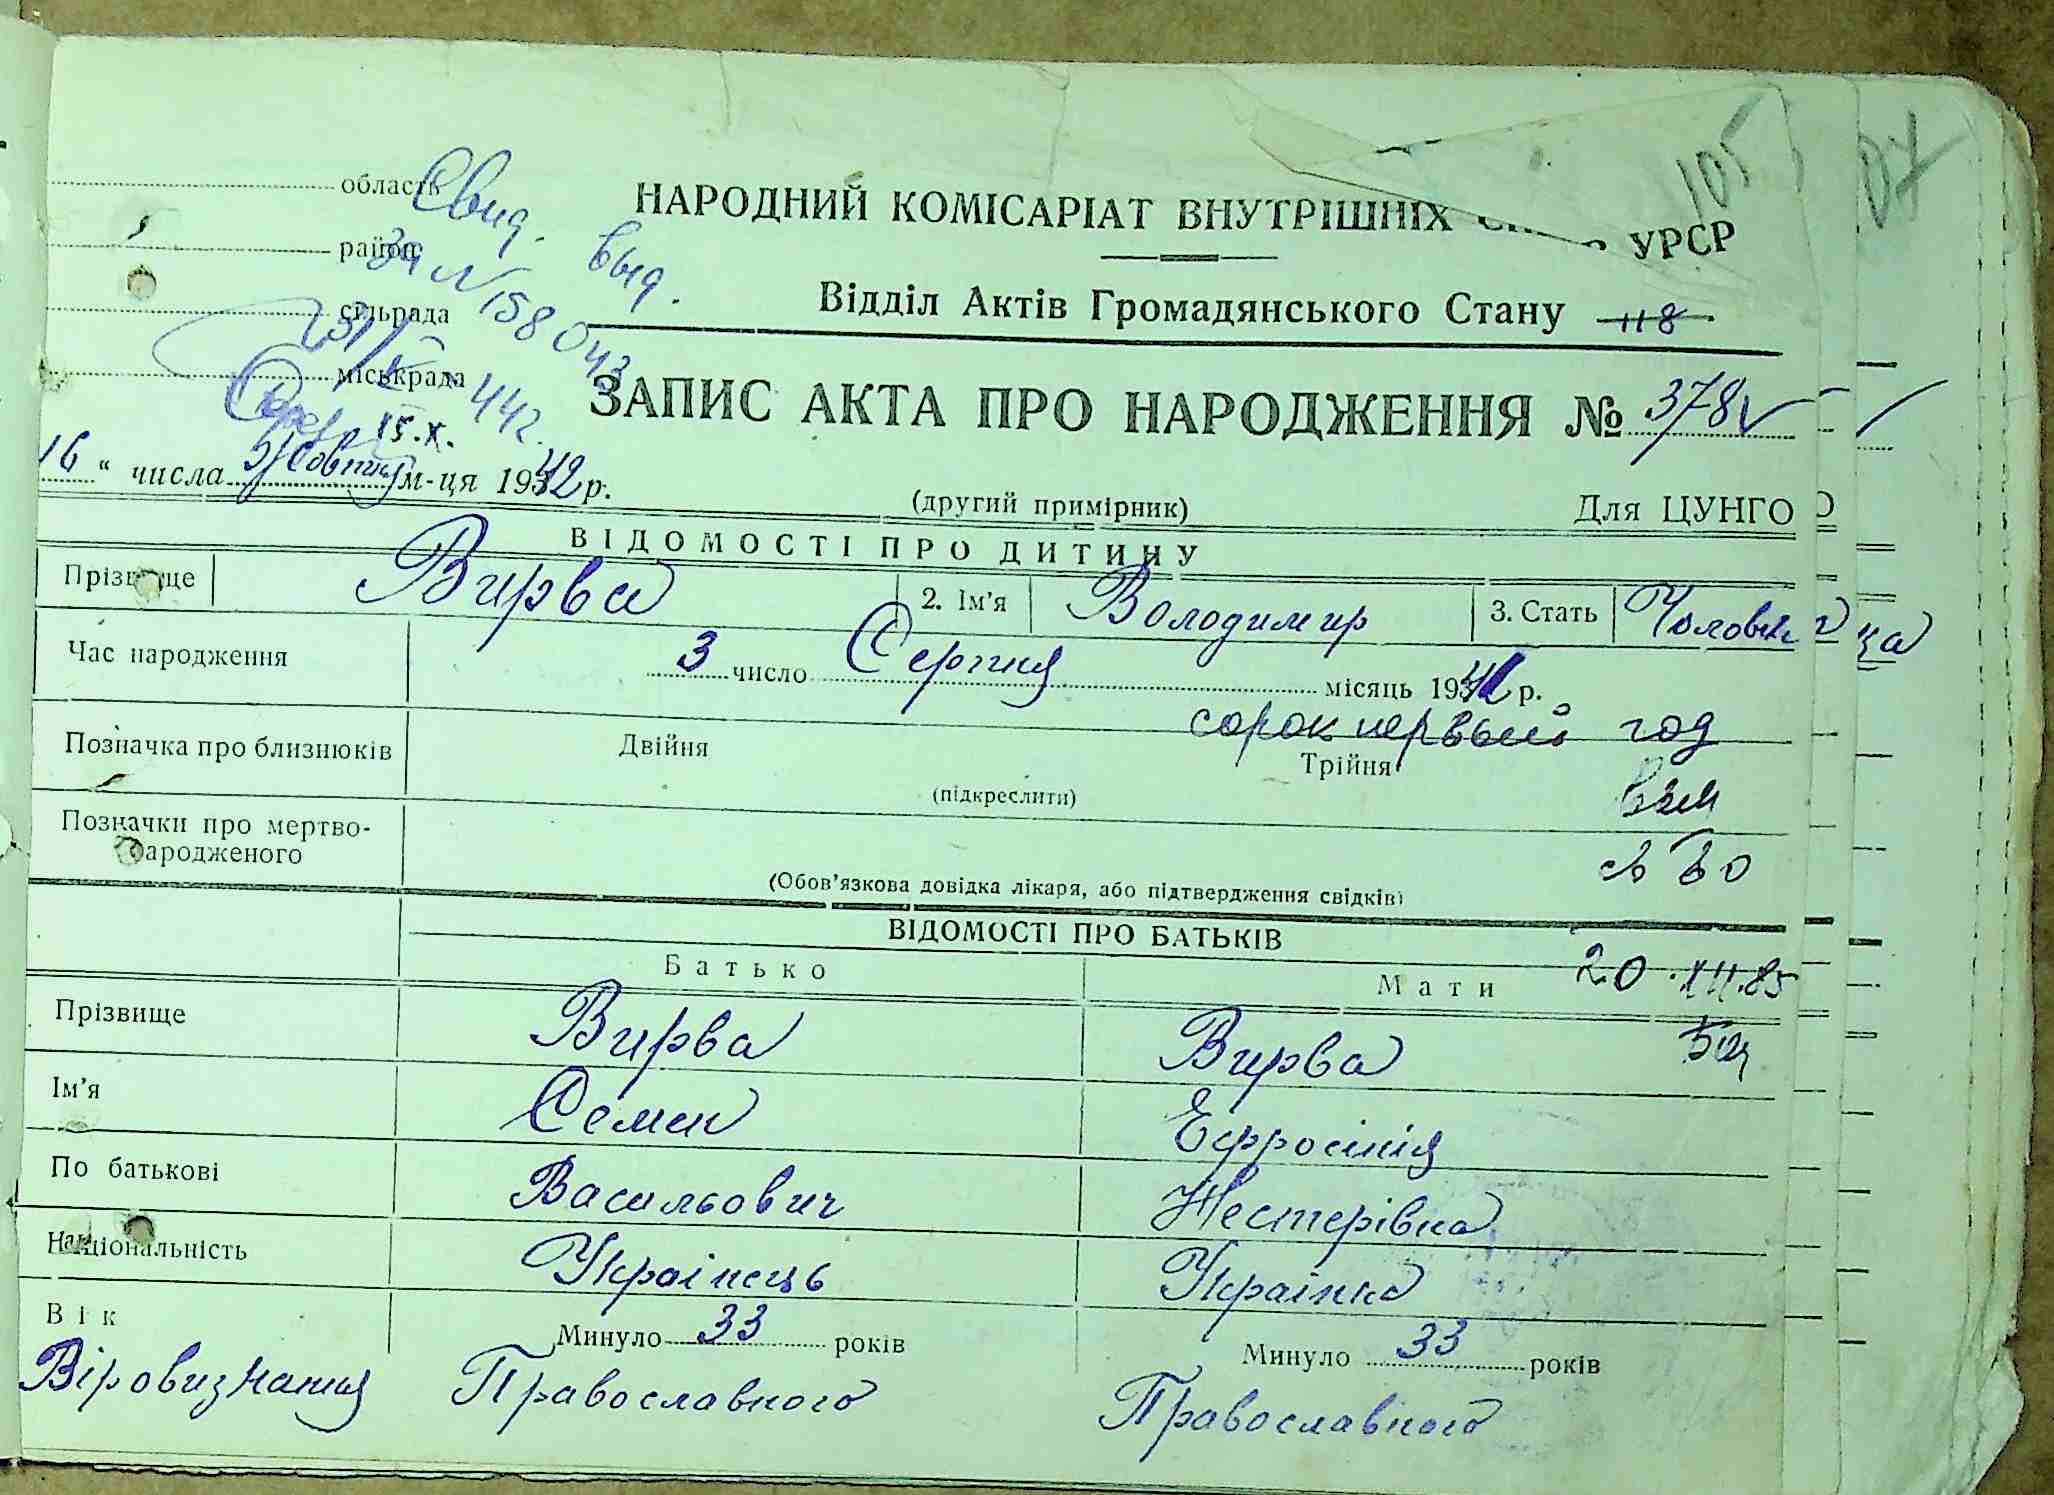 105
07
область
Свид. выд.
НАРОДНИЙ КОМІСАРІАТ ВНУТРІШНІХ УРСР
район
за N 158043
Відділ Актів Громадянського Стану 118
сільрада
міськрада
44г.
ЗАПИС АКТА ПРО НАРОДЖЕННЯ № 378
15.X.
16 " числа Жовтня м-ця 1942 р.
(другий примірник)
Для ЦУНГО
ВІДОМОСТІ ПРО ДИТИНУ
Прізвище Вирва 2. Ім'я Володимир 3. Стать Чоловіч
ца
Час народження 3 число Серпня місяць 1941 р.
сорок первый год
Позначка про близнюків Двійня Трійня
(підкреслити)
Позначки про мертво-
народженого
(Обов'язкова довідка лікаря, або підтвердження свідків)
ВІДОМОСТІ ПРО БАТЬКІВ
20.XII.85
Батько Мати
Прізвище Вирва Вирва
Ім'я Семен Ефросінія
По батькові Васильович Нестерівна
Національність Українець Українка
Вік Минуло 33 років Минуло 33 років
Віровизнання Православного Православного